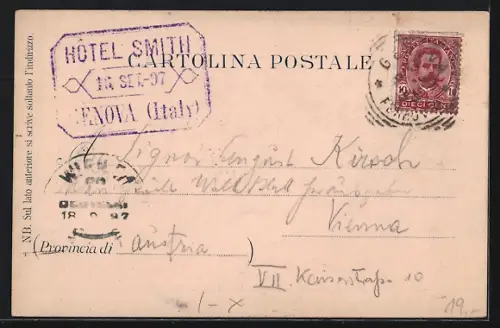 HOTEL SMITH
15 SET. 97
GENOVA (Italy)
CARTOLINA POSTALE
DIECI
10
FERROV
N.B. Sul lato anteriore si scrive soltanto l'indirizzo.
Signor August Kirsch
WIEN
BESTELLT
18 9 97
Vienna
(Provincia di Austria)
VII. Kaiserstraße 10
1-x
19,-